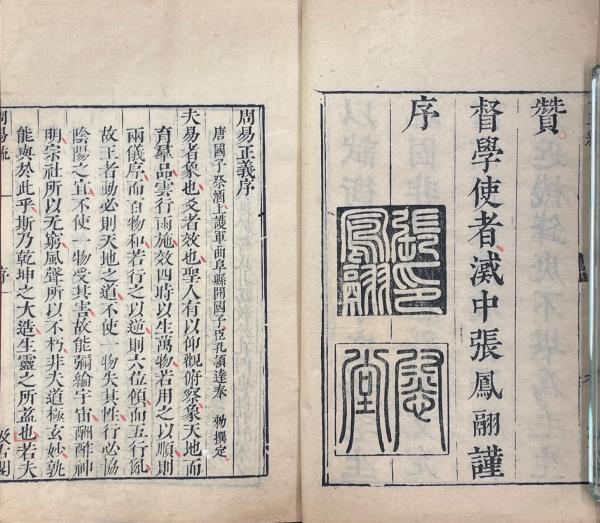 贊
督學使者中張鳳翮謹
序
張印鳳翮
堂
周易正義序
唐國子祭酒上護軍曲阜縣開國子臣孔穎達奉 勑撰定
夫易者象也爻者效也聖人有以仰觀俯察象天地而
育羣品雲行雨施效四時以生萬物若用之以順則
兩儀序而百物和若行之以逆則六位傾而五行亂
故王者動必則天地之道不使一物失其性行必協
陰陽之宜不使一物受其害故能彌綸宇宙酬酢神
明宗社所以无窮風聲所以不朽非夫道極玄妙孰
能與於此乎斯乃乾坤之大造生靈之所益也若夫
周易疏 序 一 汲古閣